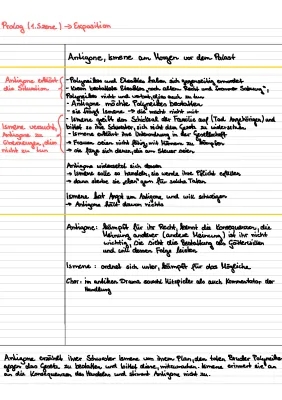 Prolog (1. Szene) → Exposition
Antigone, Ismene am Morgen vor dem Palast
Antigone erklärt die Situation
- Polyneikes und Eteokles haben sich gegenseitig ermordet
- Kreon bestattete Eteokles „nach altem Recht und
Polyneikes nicht und verbot, dies auch zu tun
- Antigone möchte Polyneikes bestatten
- sie fragt Ismene → die macht nicht mit
Ismene versucht, Antigone zu überzeugen, dies nicht zu tun
- Ismene greift den Schicksal der Familie auf (Tod Angehöriger) und
bittet so ihre Schwester, sich nicht dem Gesetz zu widersetzen
- Ismene erklärt ihre Unterordnung in der Gesellschaft
→ Frauen seien nicht fähig, mit Männern zu kämpfen
→ sie füge sich denen, die am Steuer seien
Antigone widersetzt sich davon
→ Ismene solle so handeln, sie werde ihre Pflicht erfüllen
→ dann sterbe sie eben gern für solche Taten
Ismene hat Angst um Antigone und will schweigen
→ Antigone hält davon nichts
Antigone: kämpft für ihr Recht, kennt die Konsequenzen, die
Meinung anderer (andere Meinung) ist ihr nicht
wichtig, sie sieht die Bestattung als Götterwillen
und will diesen Folge leisten
Ismene: ordnet sich unter, kämpft für das Mögliche
Chor: im antiken Drama sowohl Mitspieler als auch Kommentator der
Handlung
Antigone erzählt ihrer Schwester Ismene von ihrem Plan, den toten Bruder Polyneikes
gegen das Gesetz zu bestatten und bittet diese, mitzumachen. Ismene erinnert sie an
an die Konsequenzen des Handelns und stimmt Antigone nicht zu.